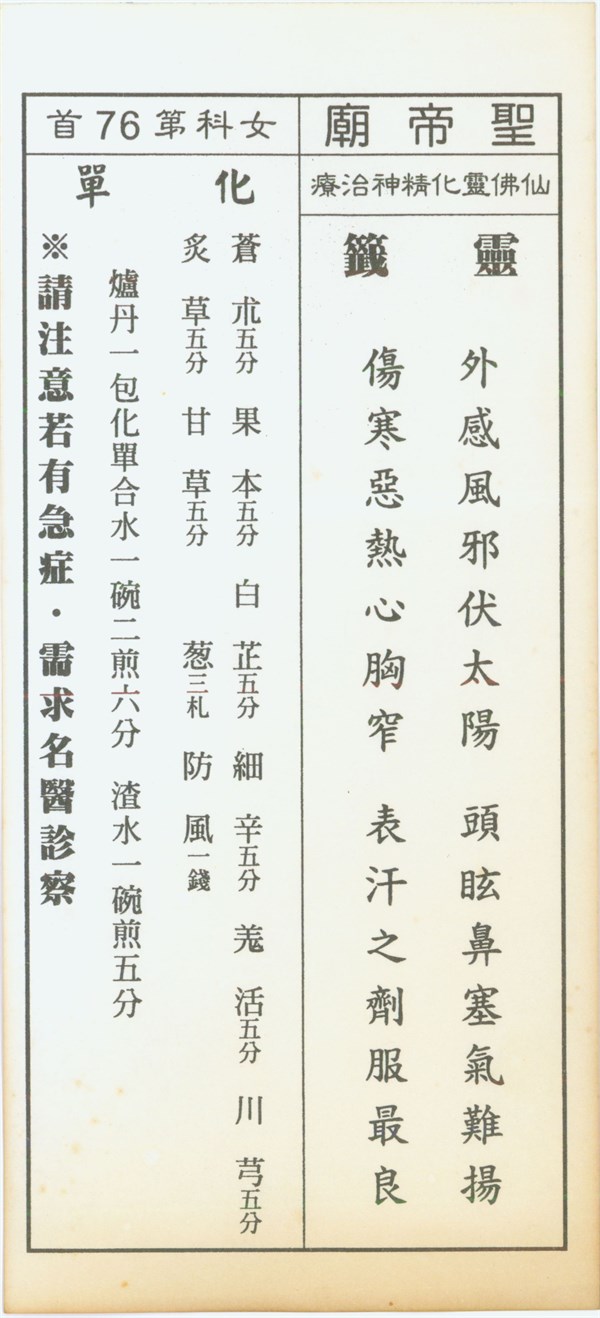 聖帝廟
仙佛靈化精神治療
靈籤
外感風邪伏太陽 頭眩鼻塞氣難揚
傷寒惡熱心胸窄 表汗之劑服最良
女科第76首
化單
蒼朮五分 果本五分 白芷五分 細辛五分 羗活五分 川芎五分
炙草五分 甘草五分 葱三札 防風一錢
爐丹一包化單合水一碗二煎六分 渣水一碗煎五分
※請注意若有急症．需求名醫診察